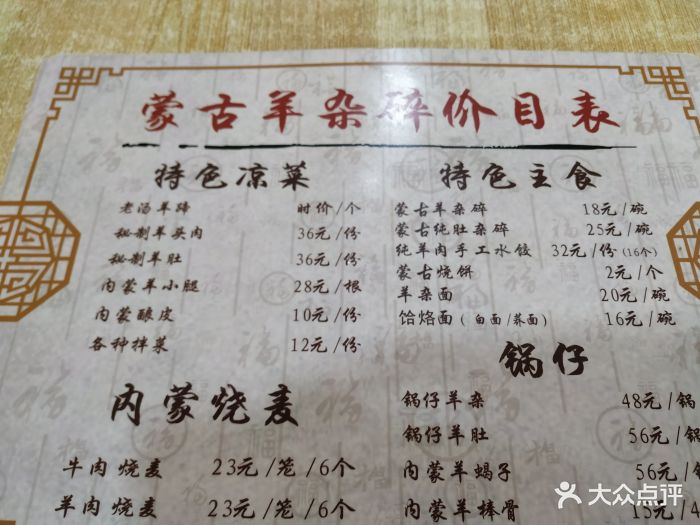 蒙古羊杂碎价目表
特色凉菜
老汤羊蹄 时价/个
秘制羊头肉 36元/份
秘制羊肚 36元/份
内蒙羊小腿 28元/根
内蒙酿皮 10元/份
各种拌菜 12元/份
内蒙烧麦
牛肉烧麦 23元/笼/6个
羊肉烧麦 23元/笼/6个
特色主食
蒙古羊杂碎 18元/碗
蒙古纯肚杂碎 25元/碗
纯羊肉手工水饺 32元/份(16个)
蒙古烧饼 2元/个
羊杂面 20元/碗
饸烙面(白面/荞面) 16元/碗
锅仔
锅仔羊杂 48元/锅
锅仔羊肚 56元/锅
内蒙羊蝎子 56元/锅
内蒙羊棒骨 15元/
大众点评